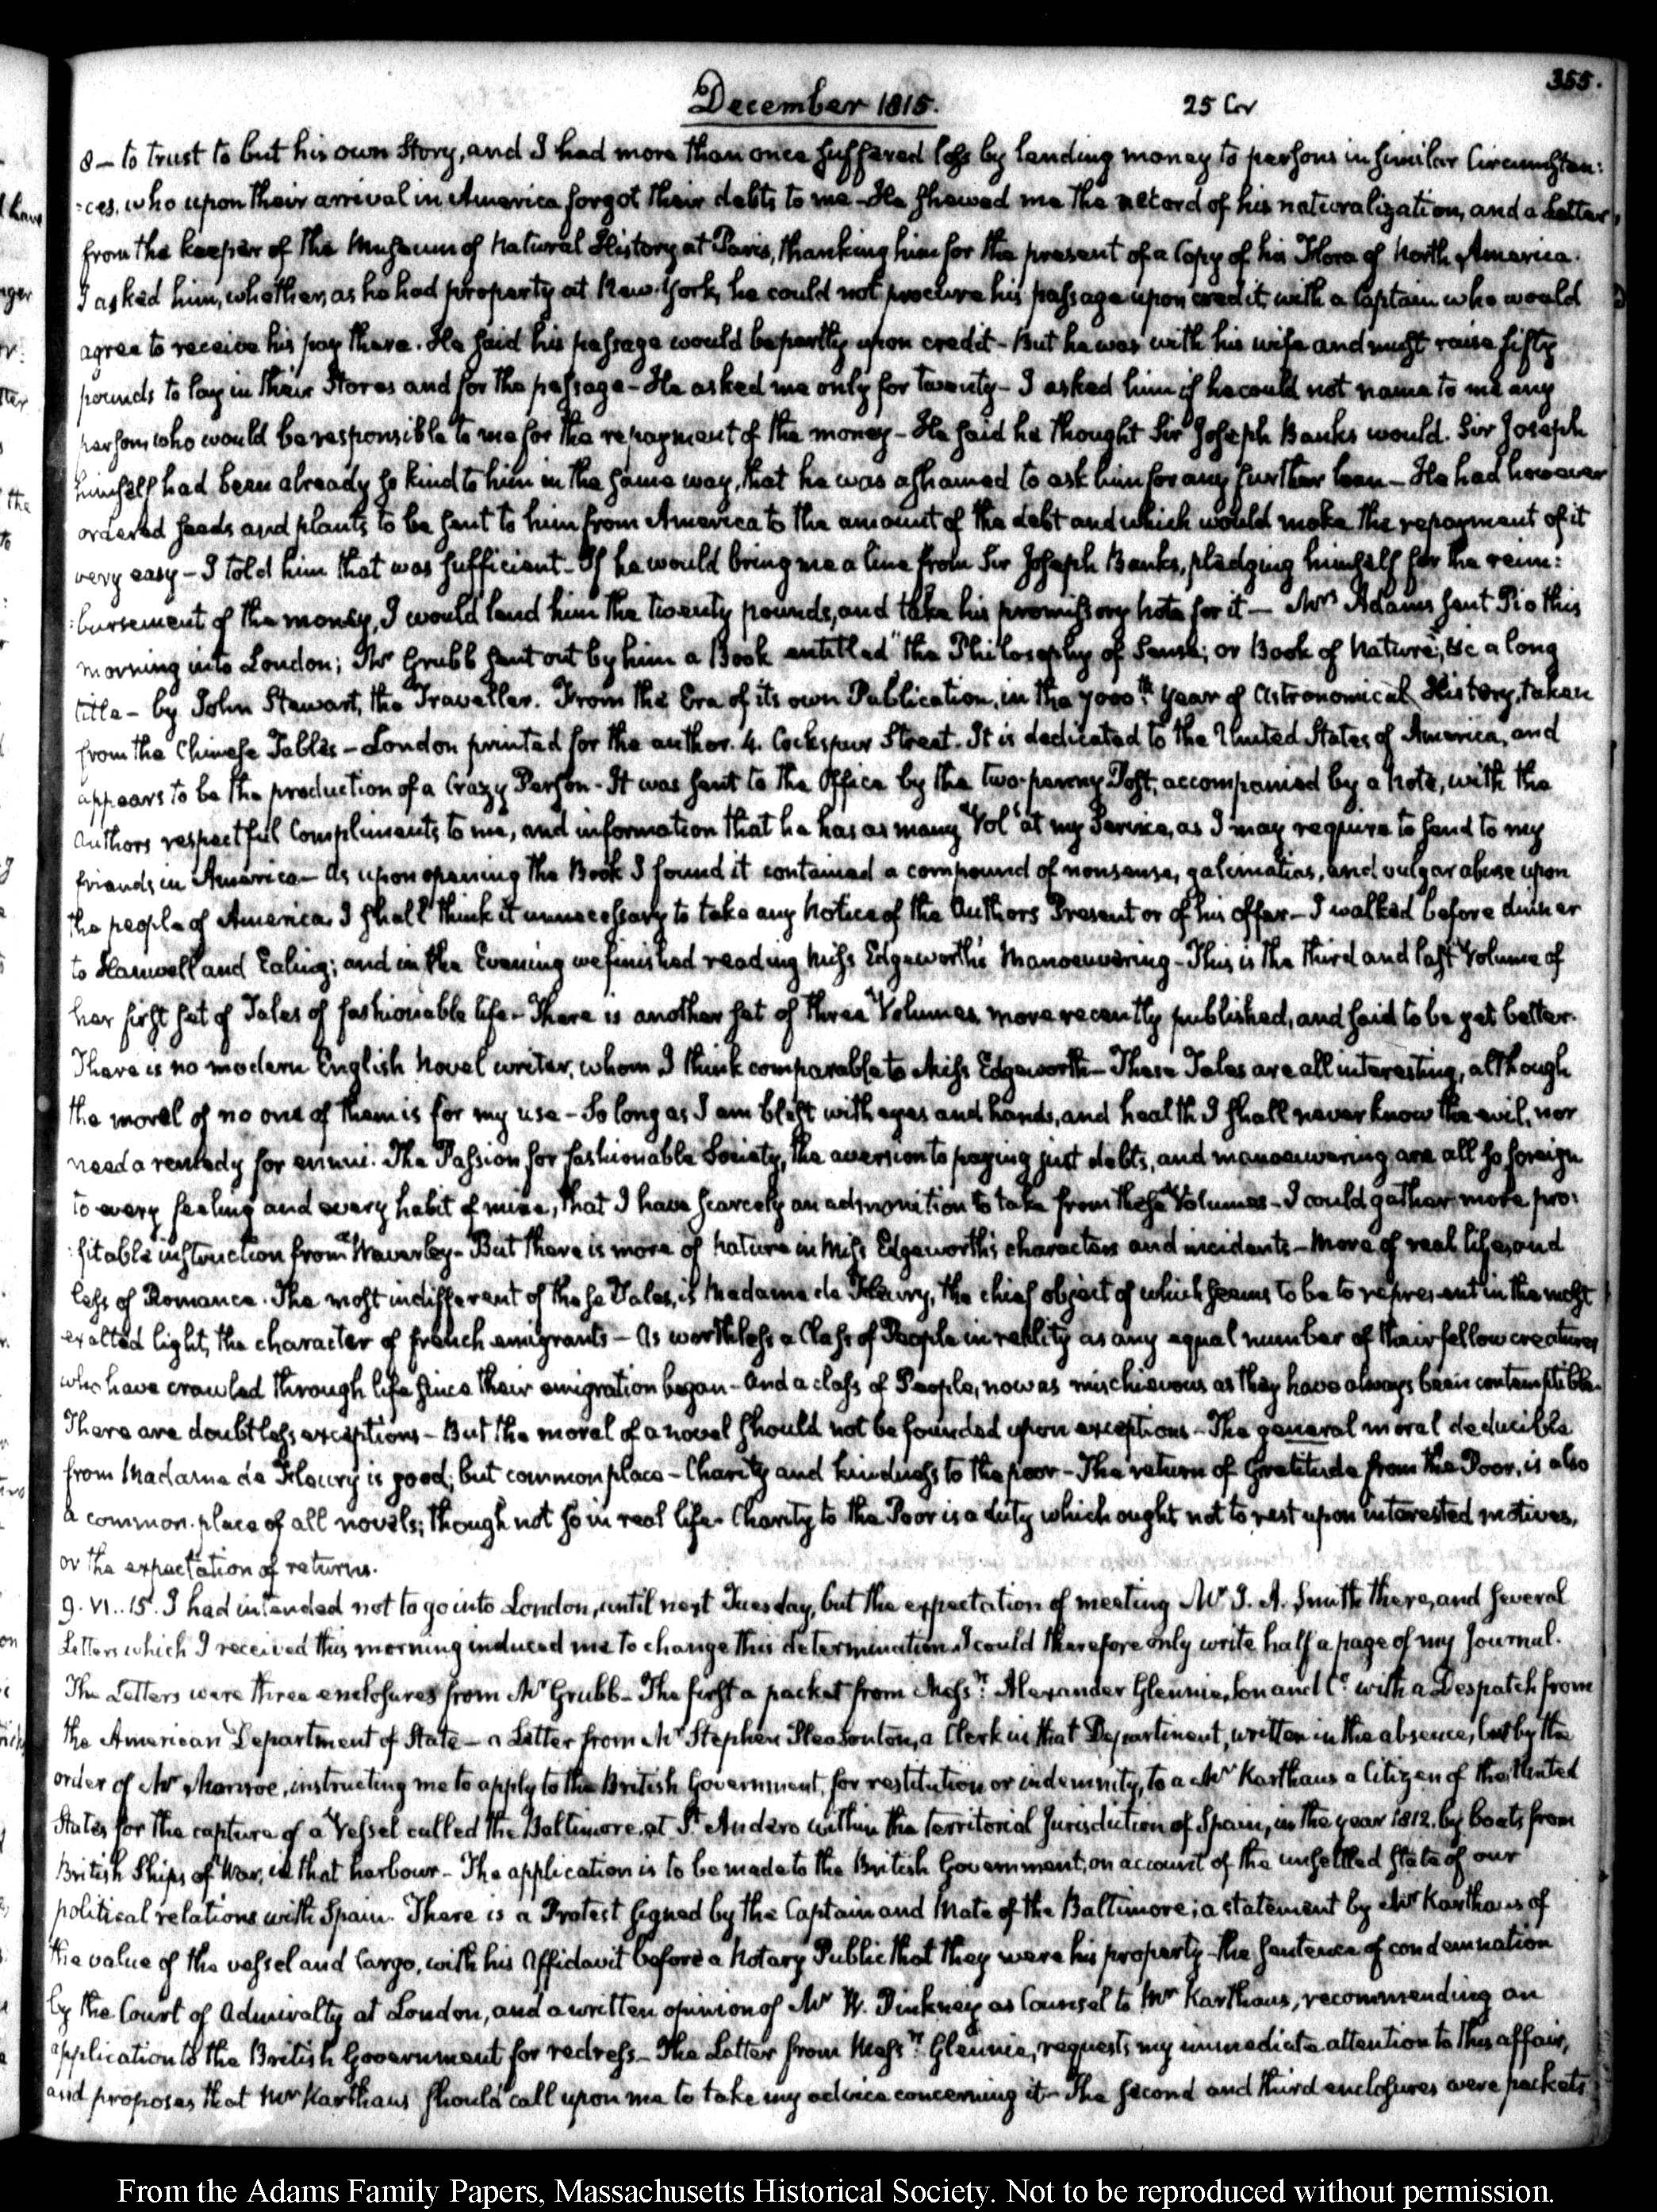 355.
December 1815. 25 Cor
8 – to trust to but his own Story, and I had more than once suffered loss by lending money to persons in similar Circumstan:
:ces, who upon their arrival in America forgot their debts to me – He shewed me the record of his naturalization, and a Letter
from the keeper of the Museum of Natural History at Paris, thanking him for the present of a Copy of his Flora of North America.
I asked him, whether, as he had property at New-York, he could not procure his passage upon credit, with a Captain who would
agree to receive his pay there. He said his passage would be partly upon credit – But he was with his wife and must raise fifty
pounds to lay in their Stores and for the passage – He asked me only for twenty – I asked him if he could not name to me any
person who would be responsible to me for the repayment of the money – He said he thought Sir Joseph Banks would. Sir Joseph
himself had been already so kind to him in the same way, that he was ashamed to ask him for any further loan – He had however
ordered seeds and plants to be sent to him from America to the amount of the debt and which would make the repayment of it
very easy – I told him that was sufficient – If he would bring me a line from Sir Joseph Banks, pledging himself for the reim:
:bursement of the money, I would lend him the twenty pounds, and take his promissory note for it – Mrs Adams sent Pio this
morning into London; Mr Grubb sent out by him a Book entitled "the Philosophy of Sense; or Book of Nature," &c a long
title – by John Stewart, the Traveller. From the Era of its own Publication, in the 7000th year of Astronomical History, taken
from the Chinese Tables – London printed for the author. 4. Cockspur Street. It is dedicated to the United States of America, and
appears to be the production of a Crazy Person – It was sent to the Office by the two-penny Post, accompanied by a Note, with the
Authors respectful Compliments to me, and information that he has as many Vols at my Service, as I may require to send to my
friends in America – As upon opening the Book I found it contained a compound of nonsense, galimatias, and vulgar abuse upon
the people of America, I shall think it unnecessary to take any Notice of the Authors Present or of his offer – I walked before dinner
to Hanwell and Ealing; and in the Evening we finished reading Miss Edgeworth's Manoeuvering – This is the third and last Volume of
her first set of Tales of fashionable life – There is another set of three Volumes more recently published, and said to be yet better.
There is no modern English Novel writer, whom I think comparable to Miss Edgeworth – These Tales are all interesting, although
the moral of no one of them is for my use – So long as I am blest with eyes and hands, and health I shall never know the evil, nor
need a remedy for ennui. The Passion for fashionable Society, the aversion to paying just debts, and manoeuvering are all so foreign
to every feeling and every habit of mine, that I have scarcely an admonition to take from these Volumes – I could gather more pro:
:fitable instruction from Waverley – But there is more of Nature in Miss Edgeworth's characters and incidents – More of real life, and
less of Romance. The most indifferent of these Tales, is Madame de Fleury, the chief object of which seems to be to represent in the most
exalted light, the character of french emigrants – As worthless a Class of People in reality as any equal number of their fellow creatures
who have crawled through life since their emigration began – And a class of People, now as mischievous as they have always been contemptible.
There are doubtless exceptions – But the moral of a novel should not be founded upon exceptions – The general moral deducible
from Madame de Fleury is good, but common place – Charity and kindness to the poor – The return of Gratitude from the Poor, is also
a common-place of all novels; though not so in real life – Charity to the Poor is a duty which ought not to rest upon interested motives,
or the expectation of returns.
9. VI..15. I had intended not to go into London, until next Tuesday, but the expectation of meeting Mr J. A. Smith there, and several
Letters which I received this morning induced me to change this determination. I could therefore only write half a page of my Journal.
The Letters were three enclosures from Mr Grubb – The first a packet from Messrs. Alexander Glennie, Son and Co. with a Despatch from
the American Department of State – a Letter from Mr Stephen Pleasonton, a Clerk in that Department, written in the absence, but by the
order of Mr Monroe, instructing me to apply to the British Government, for restitution or indemnity, to a Mr Karthaus a Citizen of the United
States for the capture of a Vessel called the Baltimore, at St Andero within the territorial Jurisdiction of Spain, in the year 1812. by boats from
British Ships of War, in that harbour – The application is to be made to the British Government, on account of the unsettled State of our
political relations with Spain. There is a Protest signed by the Captain and Mate of the Baltimore; a statement by Mr Karthaus of
the value of the vessel and Cargo, with his Affidavit before a Notary Public that they were his property – the sentence of condemnation
by the Court of Admiralty at London, and a written opinion of Mr W. Pinkney as Counsel to Mr Karthaus, recommending an
application to the British Government for redress – The Letter from Messrs. Glennie, requests my immediate attention to this affair,
and proposes that Mr Karthaus should call upon me to take my advice concerning it – The second and third enclosures were packets
From the Adams Family Papers, Massachusetts Historical Society. Not to be reproduced without permission.